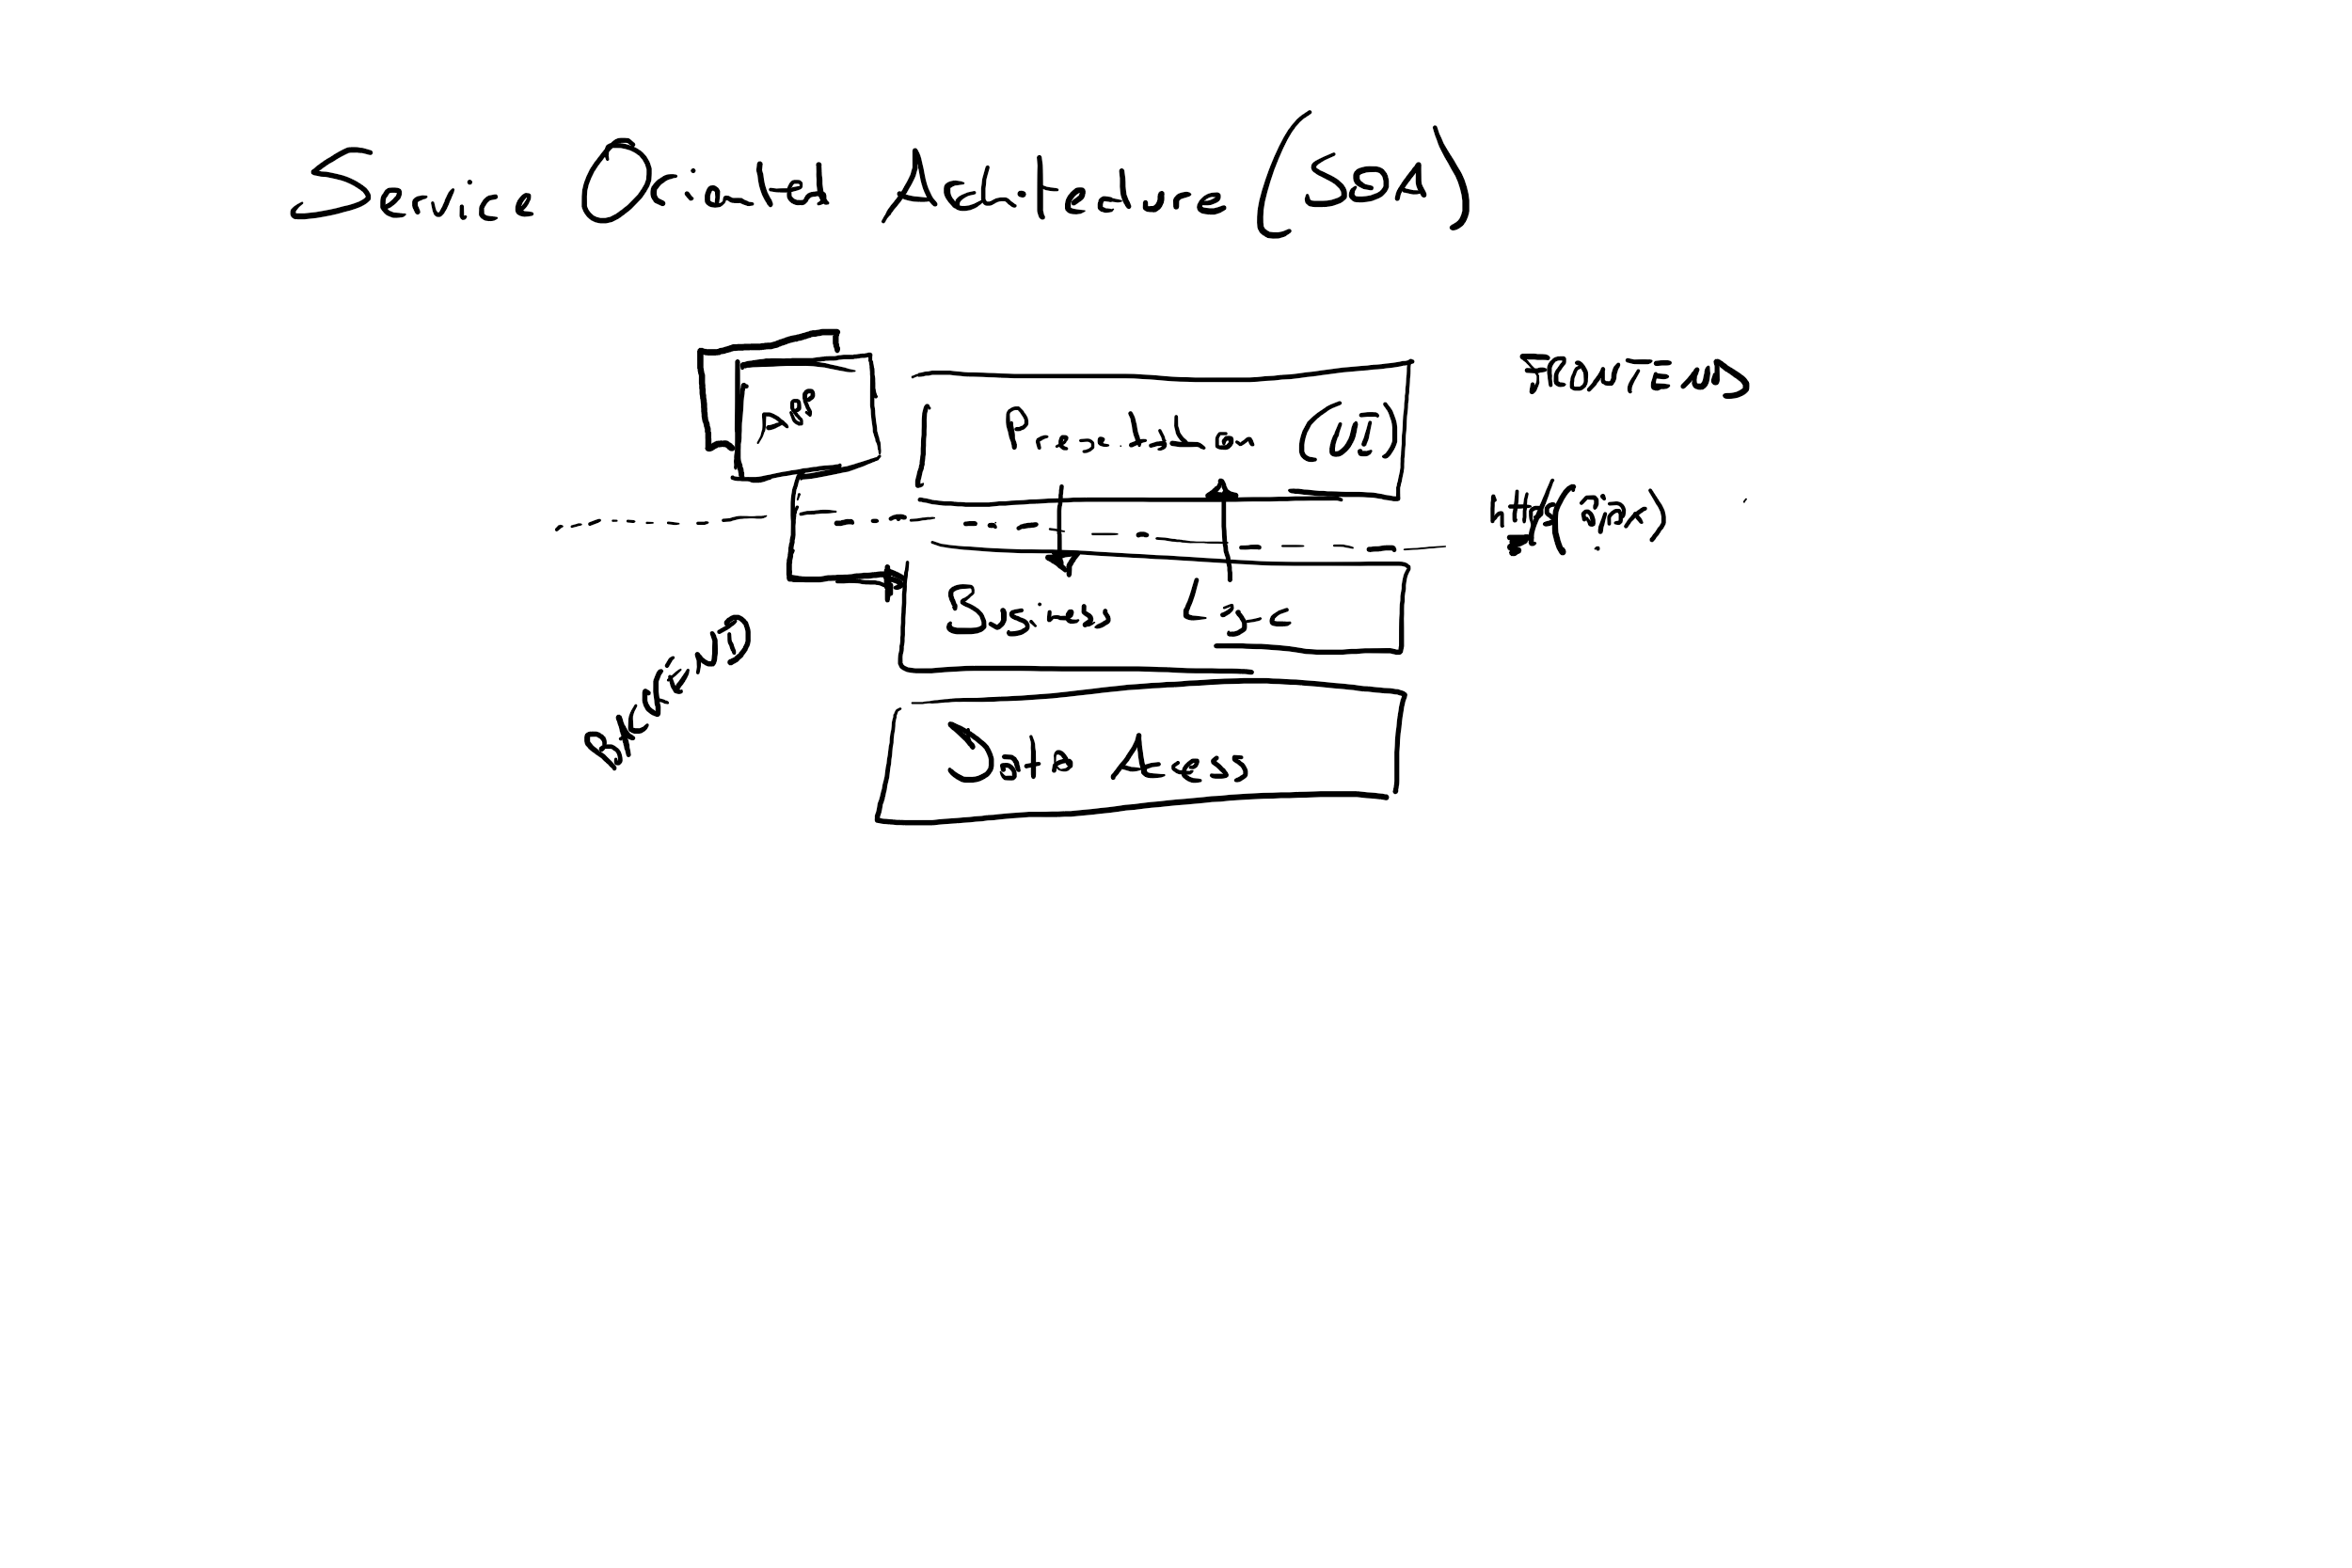 Service Oriented Architecture (SOA)
App
Presentation (UI)
FRONTEND
http
Business Logic
BACKEND
Data Access